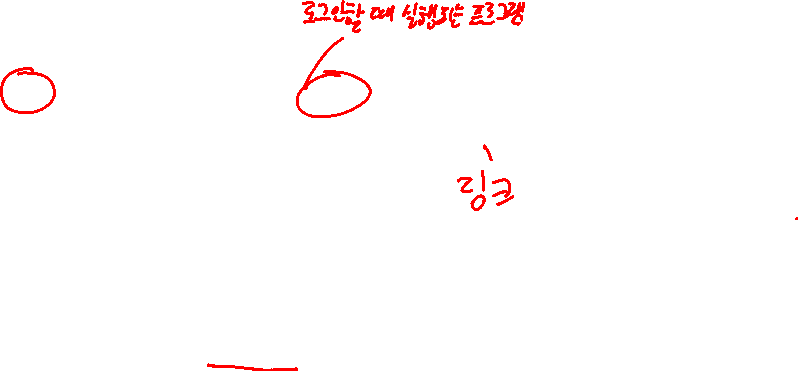 로그인할 때 실행되는 프로그램
링크